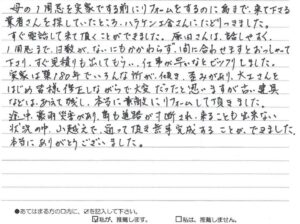 母の1周忌を実家でする前にリフォームをするのに急きょで、来て下さる
業者さんを探していたところ、ハラケン工舎さんにたどりつきました。
すぐ電話して来て頂くことができました。原田さんは、話しやすく、
1周忌まで、日数が、ないにもかかわらず、間に合わせますとおっしゃって
下さり、すぐ見積も出してもらい、仕事が早いなとビックリしました。
実家は築180年でいろんな所が、傾き、歪みがあり、大工さんを
はじめ皆様修正しながらで大変だったと思いますが古い建具
などは、あえて残し、本当に素敵にリフォームして頂きました。
途中豪雨災害があり、町も道路が寸断され、来ることも出来ない
状況の中、山越えで、通って頂き無事完成することが、できました。
本当にありがとうございました。
●あてはまる方の□内に、☑を記入して下さい。
☑私が、推薦します。 □私は、推薦しません。